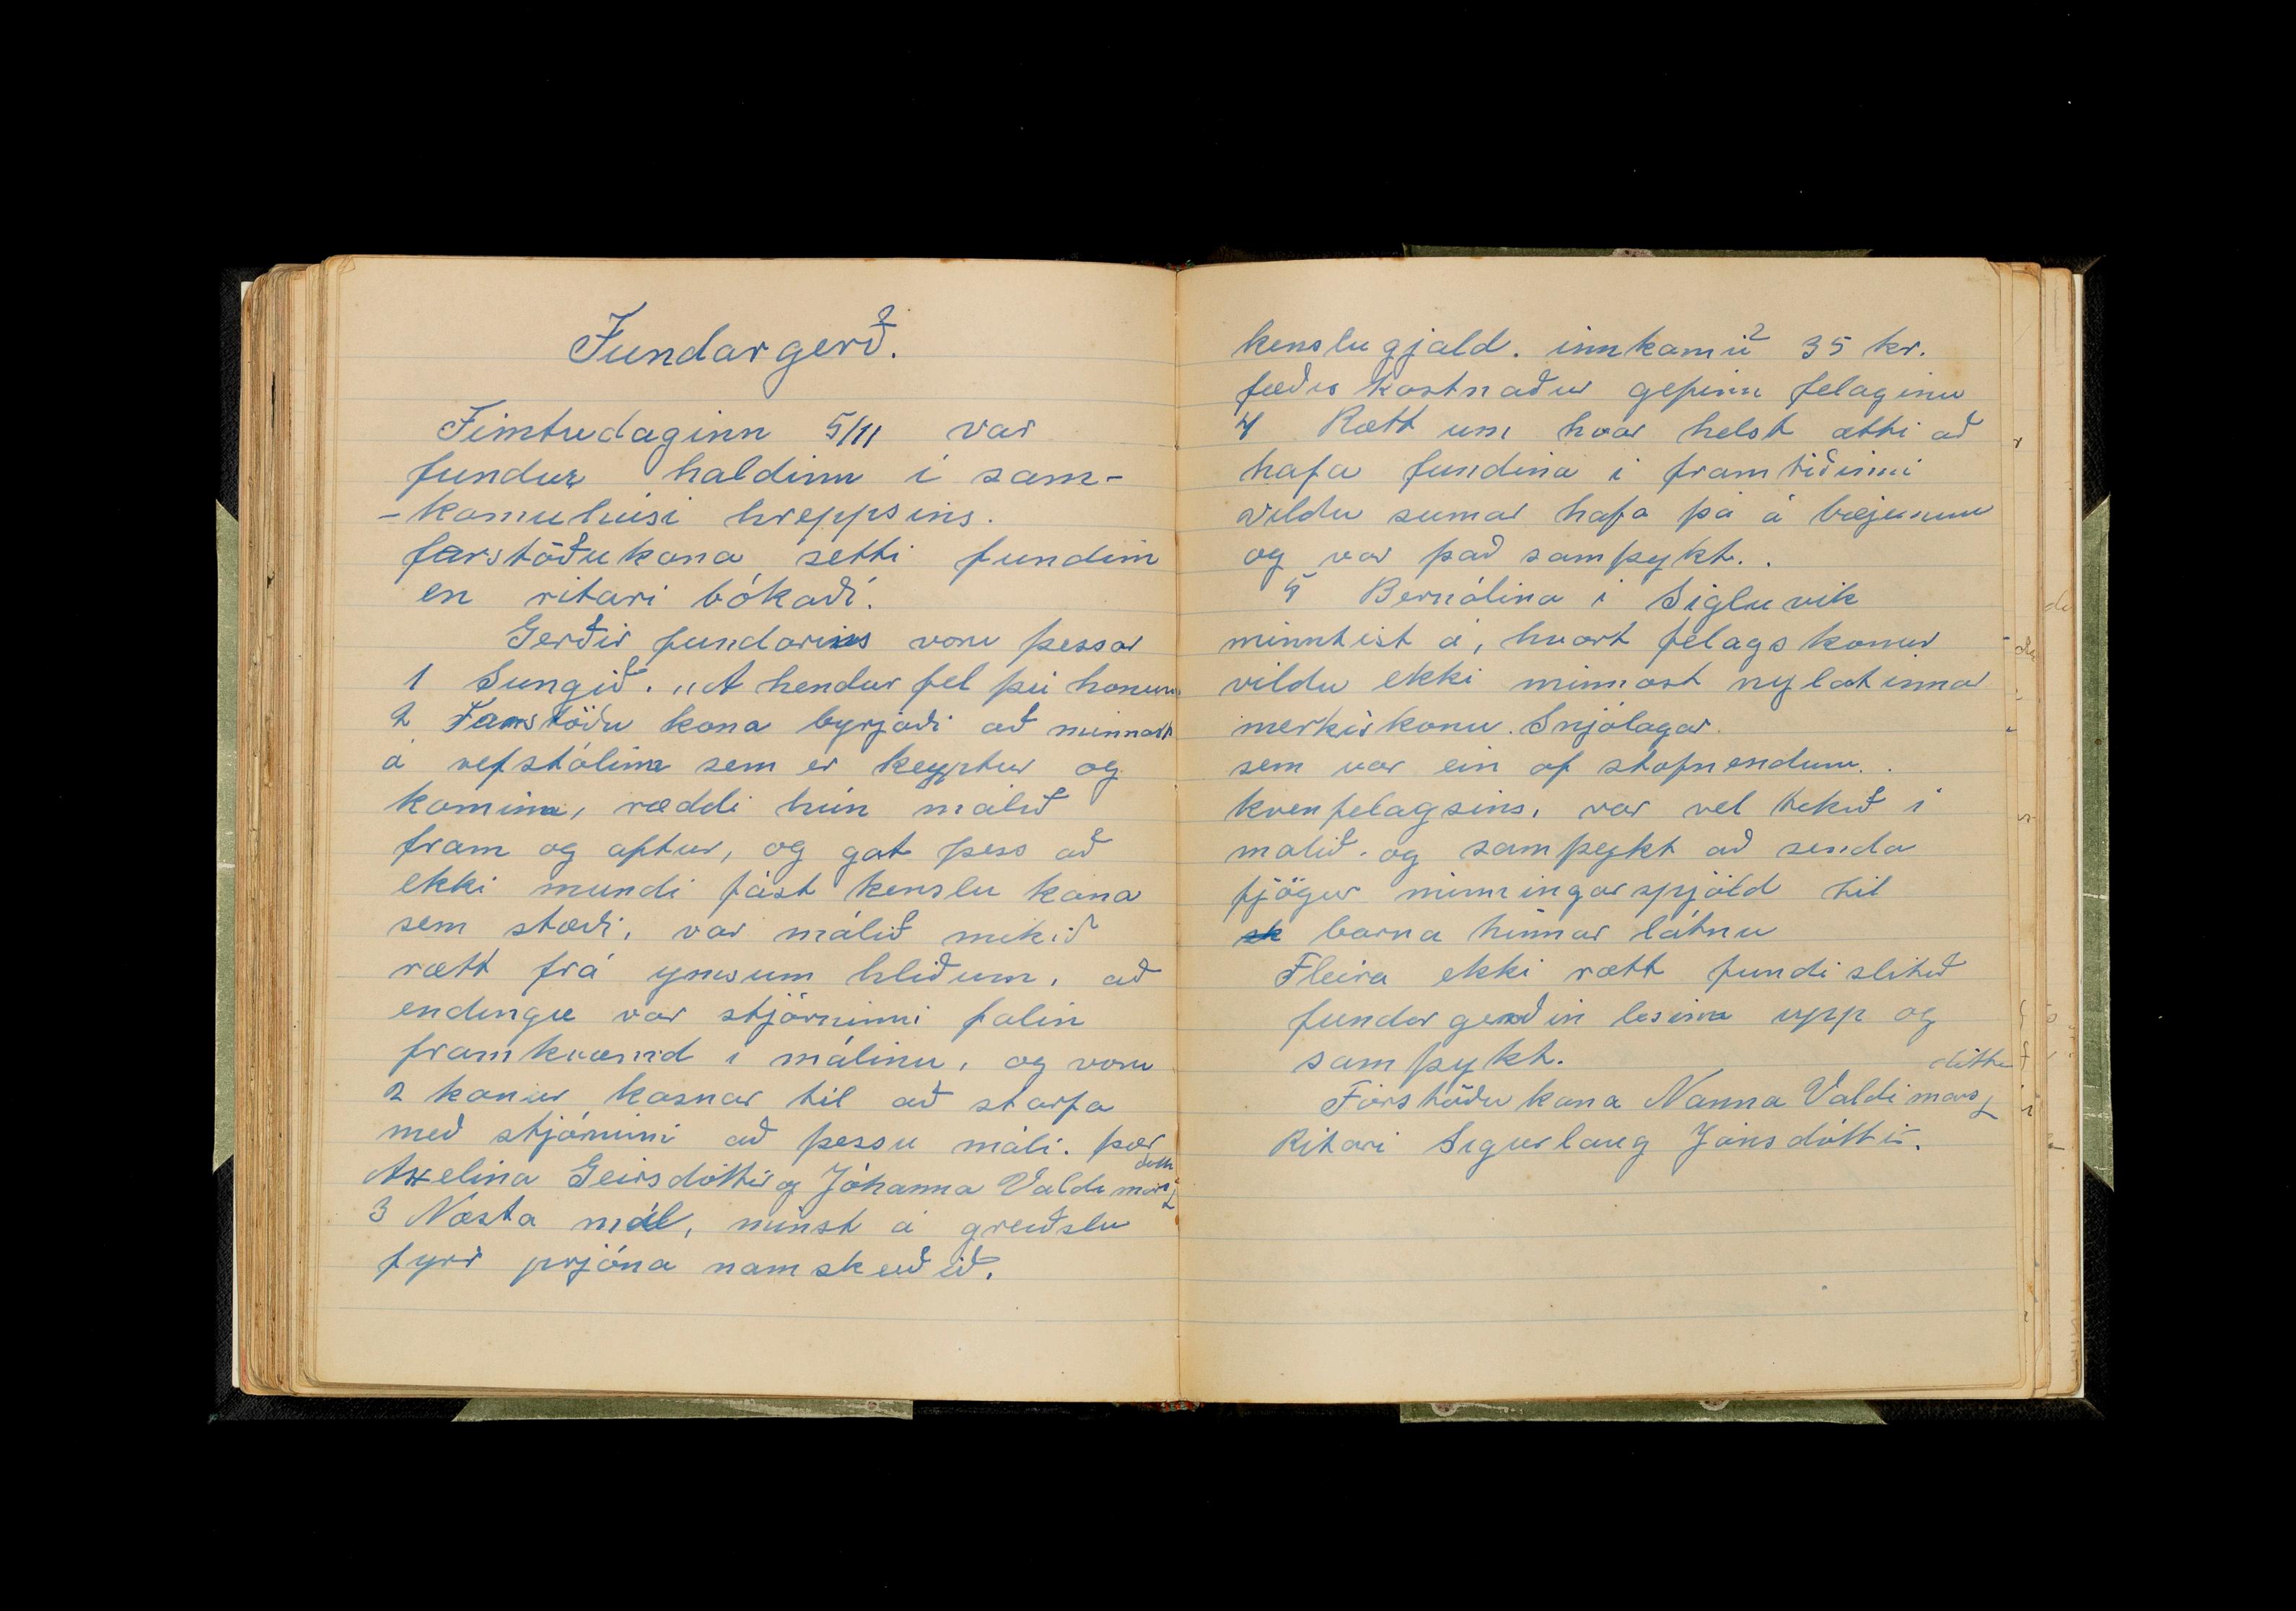 Fundargerð.
Fimtudaginn 5/11 var
fundur haldinn í sam-
-komuhúsi hreppsins.
forstöðukona setti fundinn
en ritari bókaði.
Gerðir fundarins voru þessar
1 Sungið. „Á hendur fel þú honum
2 Forstöðu kona byrjaði að minnast
á vefstólinn sem er keyptur og
kominn, ræddi hún málið
fram og aftur, og gat þess að
ekki mundi fást kenslu kona
sem stæði, var málið mikið
rætt frá ymsum hliðum, að
endingu var stjórninni falin
framkvæmd i málinu, og voru
2 konur kosnar til að starfa
með stjórnini að þessu máli. þær
Axelina Geirsdóttir og Jóhanna Valdimarsdottir
3 Næsta mál, minst á greiðslu
fyrir prjóna namskeiðið.
kenslugjald. innkomið 35 kr.
fæðis kostnaður gefinn felaginu
4 Rætt um hvar helst ætti að
hafa fundina i framtiðinni
vildu sumar hafa þá á bæjunum
og var það samþykt. .
5 Bernólina i Sigluvik
minntist á, hvort felags konur
vildu ekki minnast nylatinnar
merkiskonu. Snjólagar.
sem var ein af stofnendum. .
kvenfelagsins, var vel tekið i
malið. og samþykt að senda
fjögur minningarspjöld til
barna hinnar látnu
Fleira ekki rætt fundi slitið
fundargerðin lesinn upp og
samþykt.
Forstöðu kona Nanna Valdimarsdóttir
Ritari Sigurlaug Jónsdóttir.